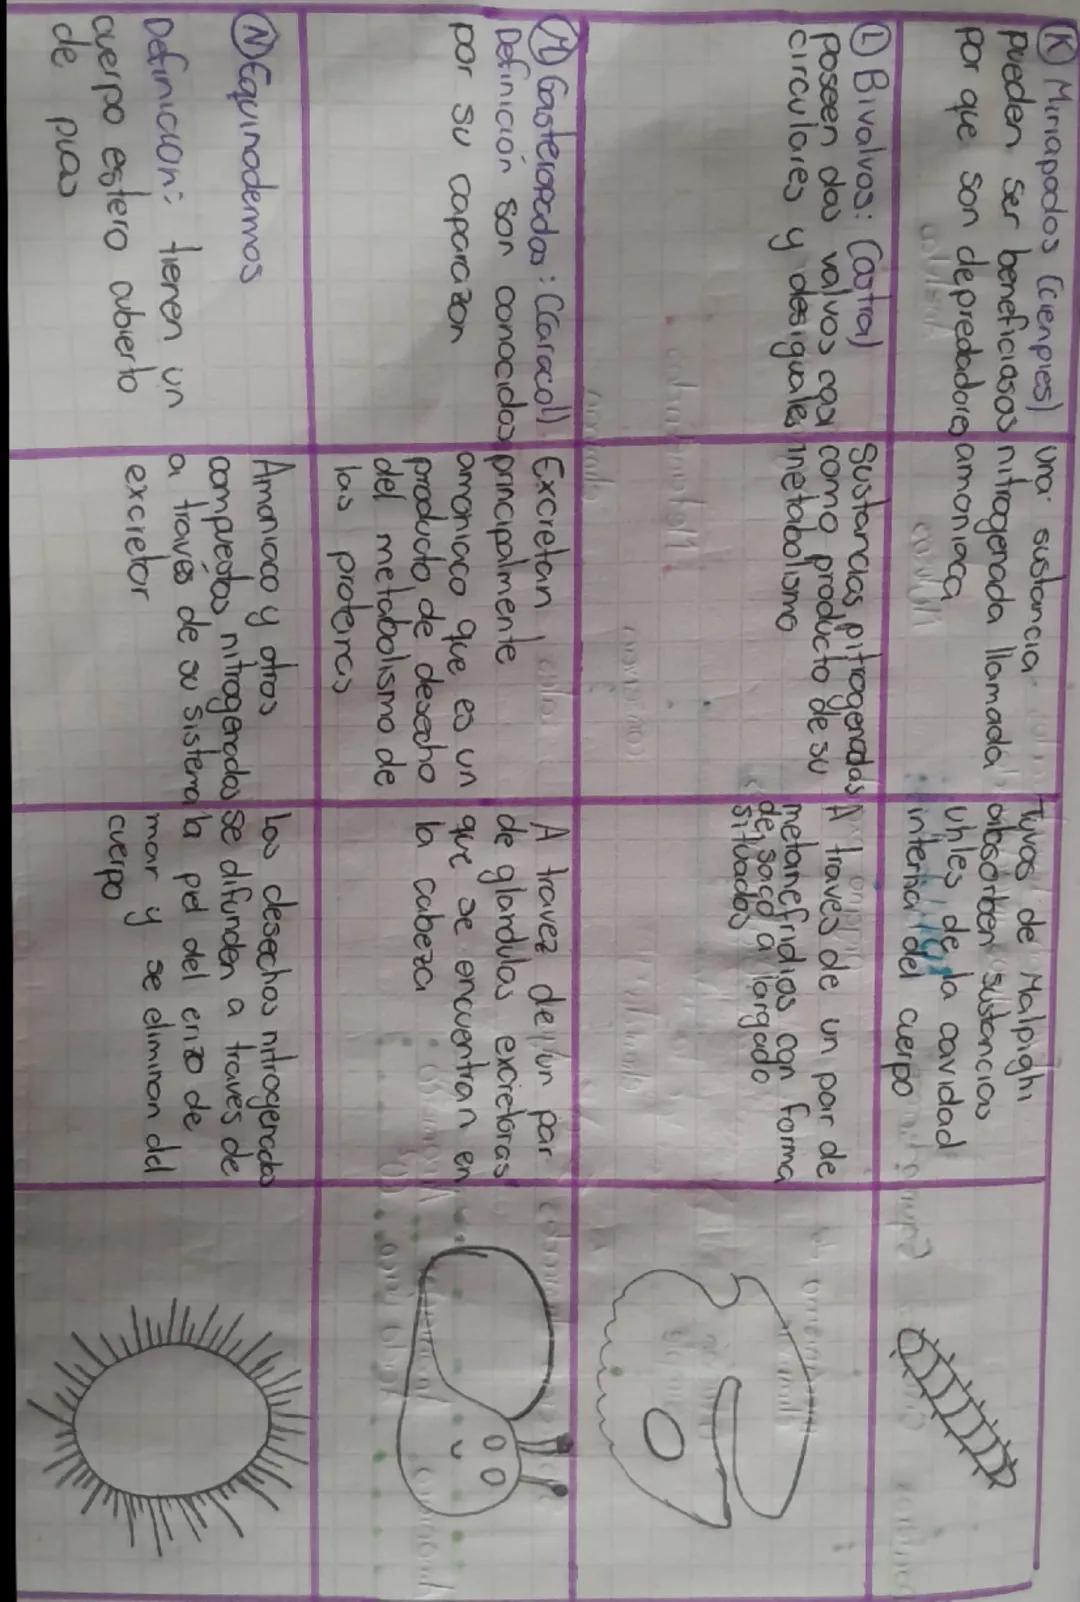 K Miriapodos (cienpies)
pueden ser beneficiosos
por que son depredadores
una sustancia
nitrogenada llamada
amoniaca
Tuvos de Malpighi
absorben sustancias
utiles de la cavidad
interna del cuerpo
L Bivalvos: (ostra)
poseen dos valvos casi
circulares y desiguales
Sustancias nitrogenadas
como producto de su
metabolismo
A traves de un par de
metanefridios con forma
de saco a largado
situados
M Gasteropodos: (Caracol)
Definición son conocidos
por su caparazon
Excretan
principalmente
amoniaco que es un
producto de desecho
del metabolismo de
las proteinas
A travez de un par
de glandulas excretoras
que se encuentran en
la cabeza
N Equinodermos
Definicion: tienen un
cuerpo esfero cubierto
de puas
Amoniaco y otros
compuestos nitrogenados
a traves de su sistema
excretor
Los desechos nitrogenados
se difunden a traves de
la piel del erizo de
mar y se eliminan del
cuerpo